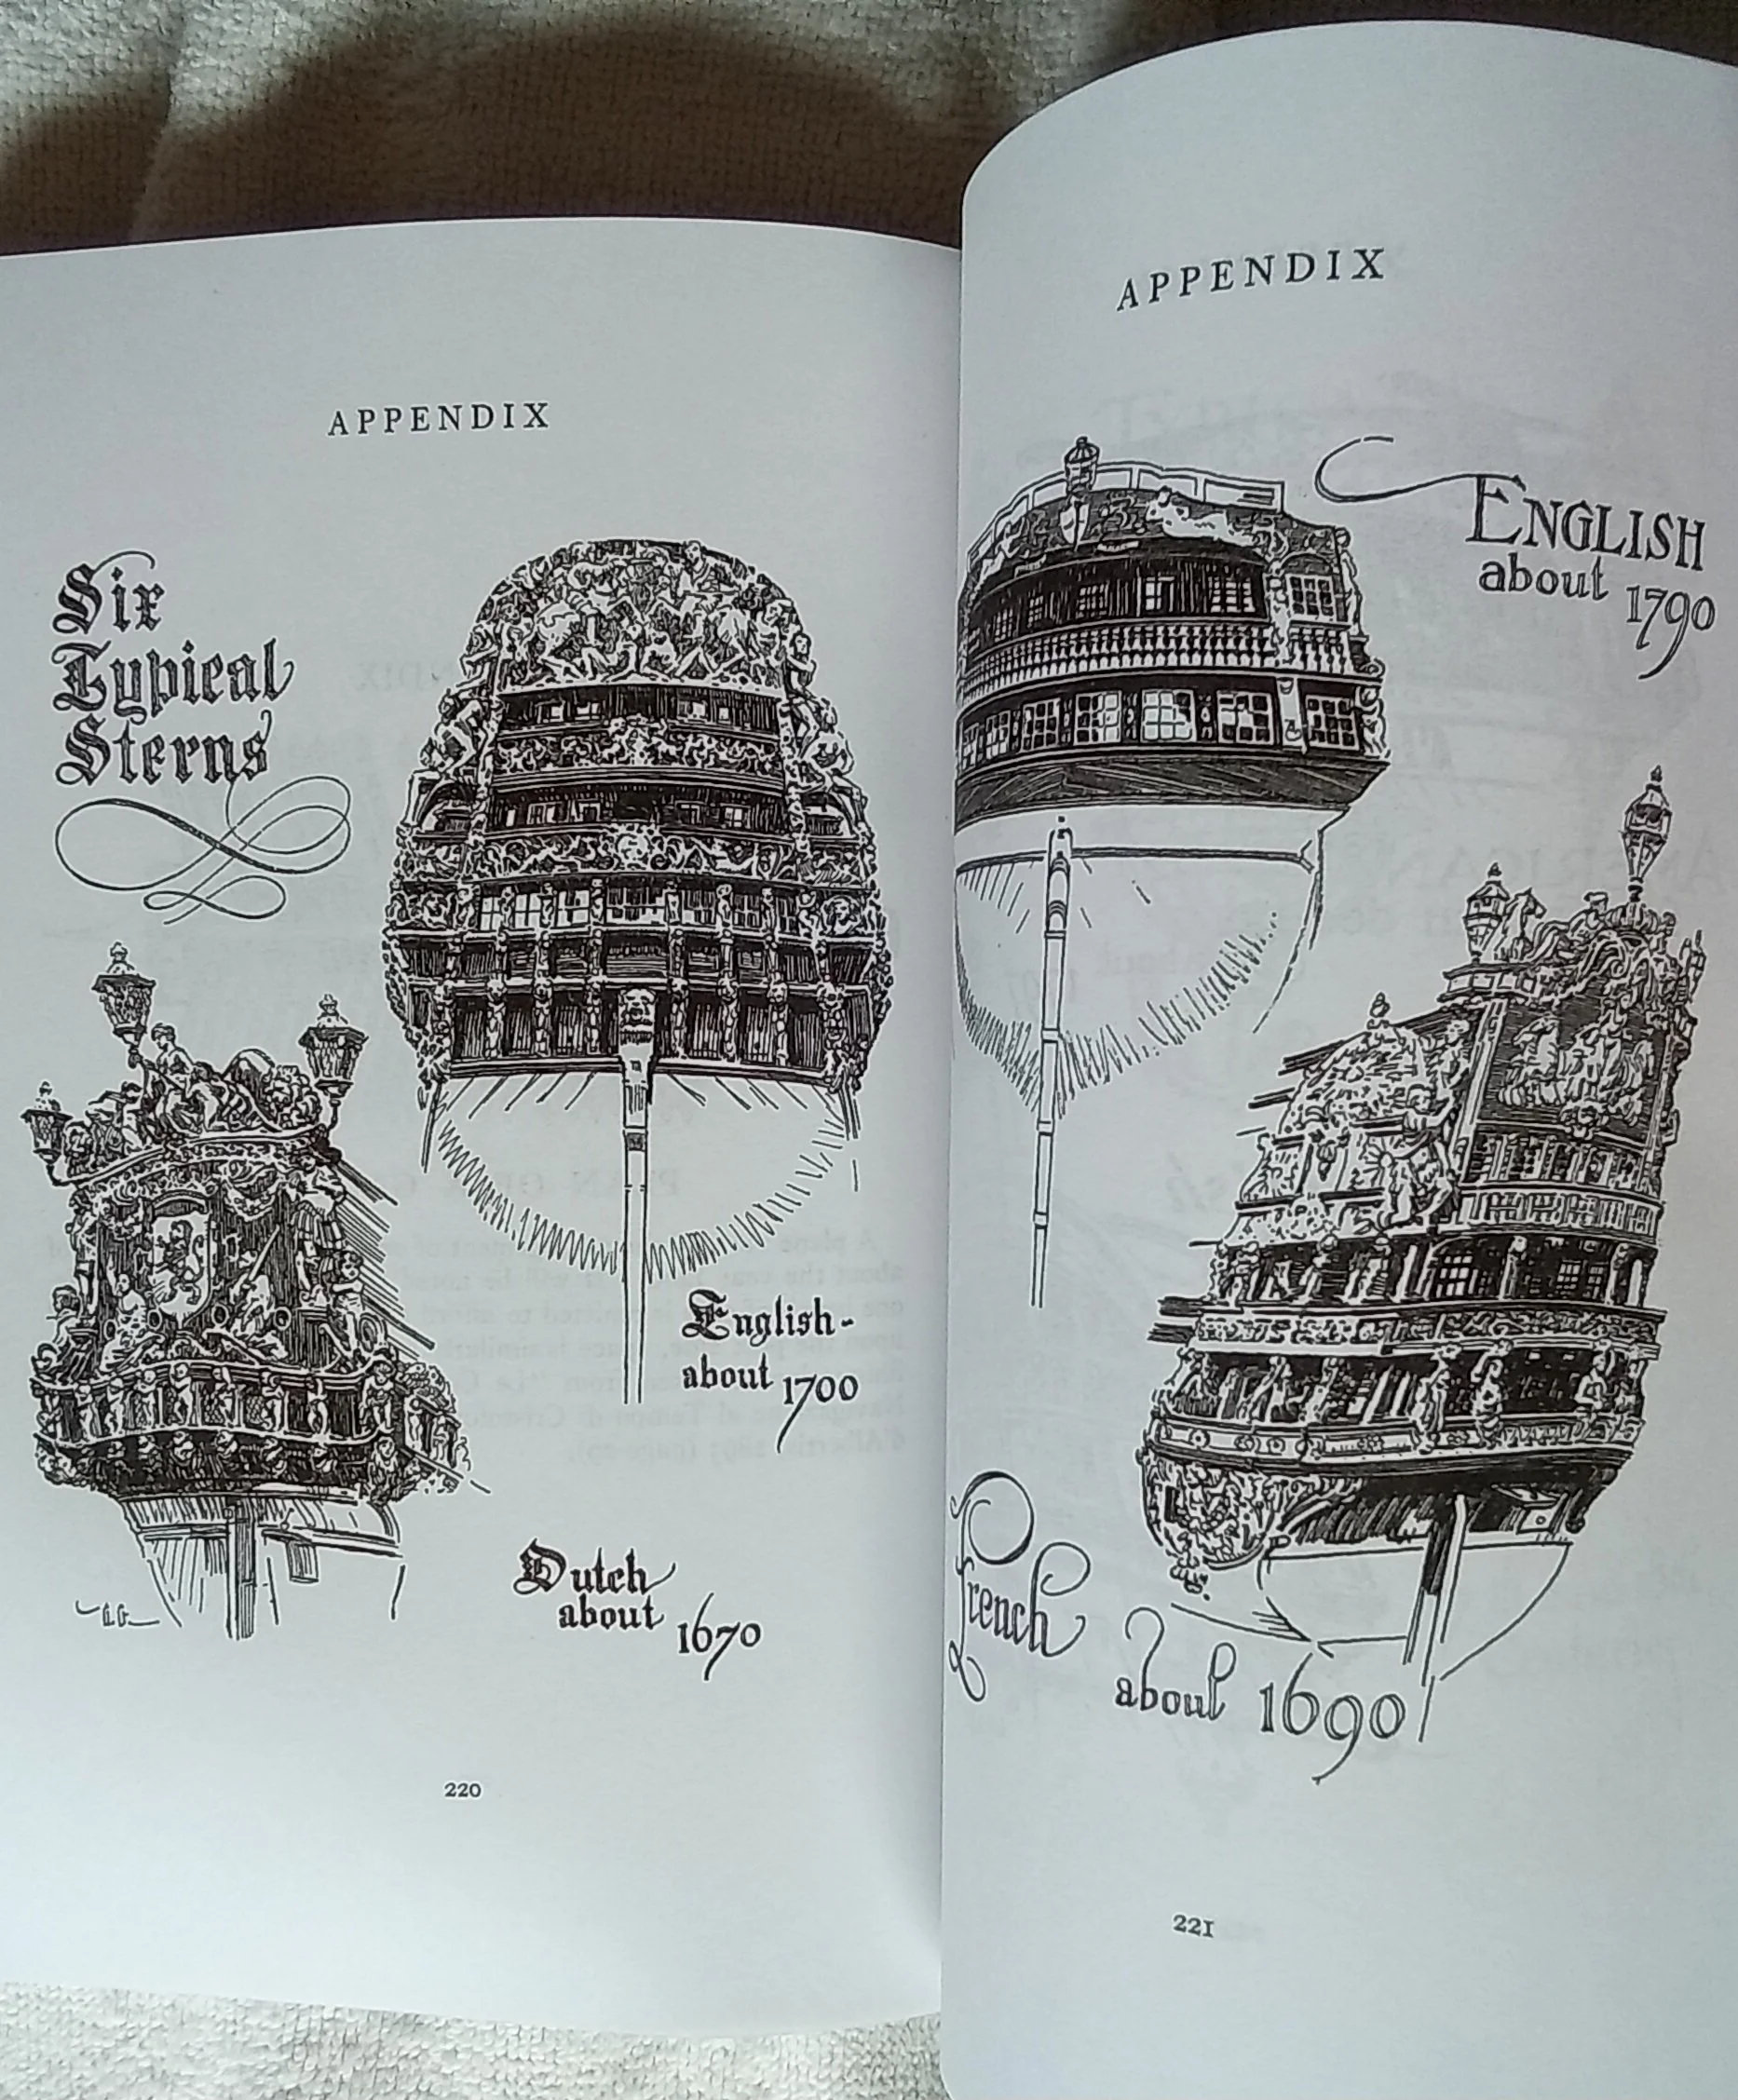 APPENDIX
Six
Typical
Sterns
English-
about 1700
Dutch
about 1670
220
APPENDIX
ENGLISH
about 1790
French
about 1690
221